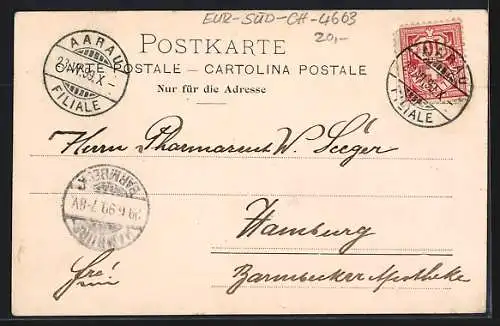 EUR-SÜD-CH-4663
20,-
POSTKARTE
CARTE POSTALE — CARTOLINA POSTALE
Nur für die Adresse
AARAU
FILIALE
AARAU
FILIALE
Herrn Pharmaceut W. Seeger
Hamburg
Barmbecker Apotheke